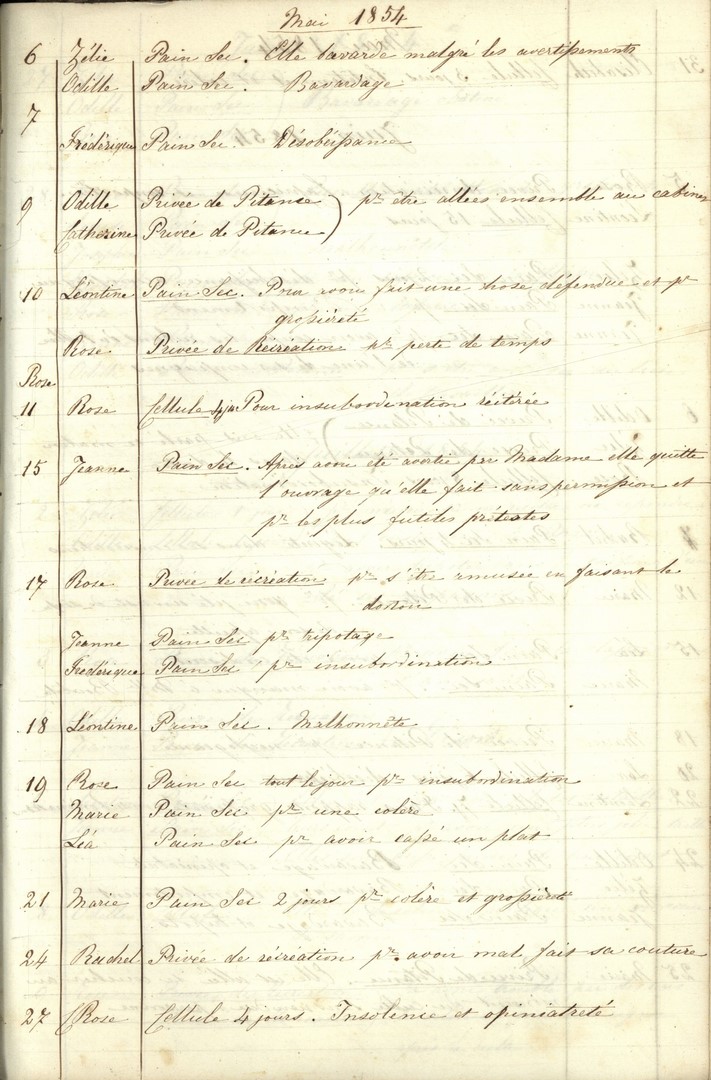 Mai 1854
6 Zélie Pain Sec. Elle bavarde malgré les avertissements
Odille Pain Sec. Bavardage
7
Frédérique Pain Sec. Désobéissance
9 Odille Privée de Pitance ) pr être allées ensemble au cabinet
Catherine Privée de Pitance
10 Léontine Pain Sec. Pour avoir fait une chose défendue et pr
grossièreté
Rose Privée de Récréation pr perte de temps
Rose
11 Rose Cellule 4 jrs Pour insubordination réitérée
15 Jeanne Pain Sec. Après avoir été avertie par Madame elle quitte
l'ouvrage qu'elle fait sans permission et
pr les plus futiles prétextes
17 Rose Privée de récréation pr s'être amusée en faisant le
dortoir
Jeanne Pain Sec pr tripotage
Frédérique Pain Sec pr insubordination
18 Léontine Pain Sec. Malhonnête
19 Rose Pain Sec tout le jour pr insubordination
Marie Pain Sec pr une colère
Léa Pain Sec pr avoir cassé un plat
21 Marie Pain Sec 2 jours pr colère et grossièreté
24 Rachel Privée de récréation pr. avoir mal fait sa couture
27 Rose Cellule 4 jours. Insolence et opiniatreté